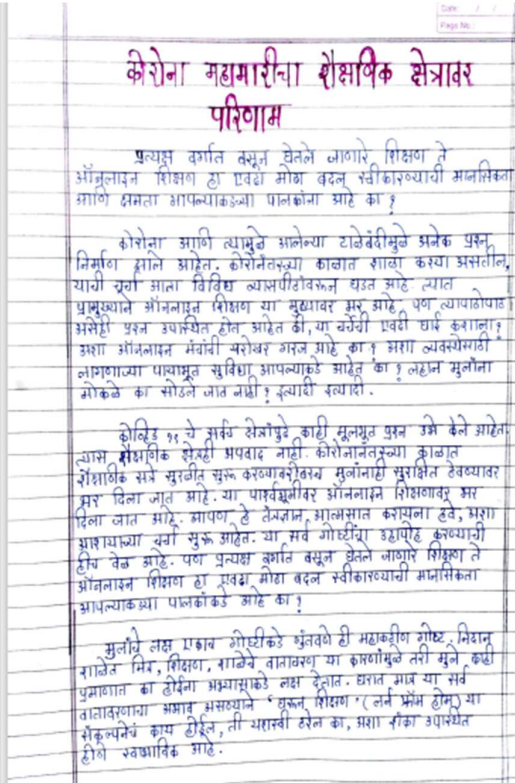 Date: / /
Page No.
कोरोना महामारीचा शैक्षणिक क्षेत्रावर
परिणाम
प्रत्यक्ष वर्गात बसून घेतले जाणारे शिक्षण ते
ऑनलाइन शिक्षण हा एवढा मोठा बदल स्वीकारण्याची मानसिकता
आणि क्षमता आपल्याकडच्या पालकांना आहे का ?
कोरोना आणि त्यामुळे आलेल्या टाळेबंदीमुळे अनेक प्रश्न
निर्माण झाले आहेत. कोरोनानंतरच्या काळात शाळा कश्या असतील,
याची चर्चा आता विविध व्यासपीठांवरून घडत आहे. त्यात
प्रामुख्याने ऑनलाइन शिक्षण या मुद्यावर भर आहे. पण त्यापाठोपाठ
असेही प्रश्न उपस्थित होत आहेत की, या चर्चेची एवढी घाई कशाला?
अशा ऑनलाइन मंचांची खरोखर गरज आहे का ? अशा व्यवस्थेसाठी
लागणाऱ्या पायाभूत सुविधा आपल्याकडे आहेत का ? लहान मुलांना
मोकळे का सोडले जात नाही ? इत्यादी इत्यादी.
कोव्हिड १९ चे सर्वच क्षेत्रांपुढे काही मूलभूत प्रश्न उभे केले आहेत.
त्यास शैक्षणिक क्षेत्रही अपवाद नाही. कोरोनानंतरच्या काळात
शैक्षणिक सत्रे सुरळीत सुरू करण्याबरोबरच मुलांनाही सुरक्षित ठेवण्यावर
भर दिला जात आहे. या पार्श्वभूमीवर ऑनलाइन शिक्षणावर भर
दिला जात आहे. आपण हे तंत्रज्ञान आत्मसात करायला हवे, अशा
आशयाच्या चर्चा सुरू आहेत. या सर्व गोष्टींचा उहापोह करण्याची
हीच वेळ आहे. पण प्रत्यक्ष वर्गात बसून घेतले जाणारे शिक्षण ते
ऑनलाइन शिक्षण हा एवढा मोठा बदल स्वीकारण्याची मानसिकता
आपल्याकडच्या पालकांकडे आहे का ?
मुलांचे लक्ष एकाच गोष्टीकडे गुंतवणे ही महाकठीण गोष्ट. निदान
शाळेत मित्र, शिक्षण, शाळेचे वातावरण या कारणांमुळे तरी मुले काही
प्रमाणात का होईना अभ्यासाकडे लक्ष देतात. घरात मात्र या सर्व
वातावरणाचा अभाव असल्याने 'घरून शिक्षण' (लर्न फ्रॉम होम) या
संकल्पनेचं काय होईल, ती यशस्वी ठरेल का, अशा शंका उपस्थित
होणे स्वाभाविक आहे.